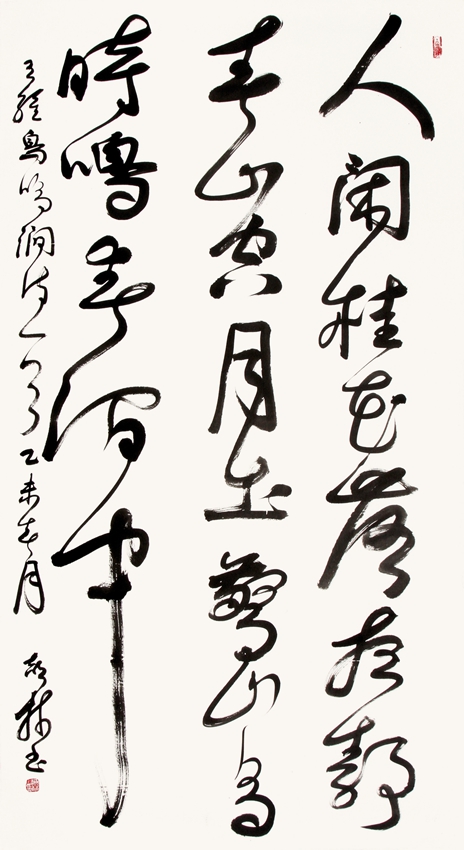 人閑桂花落夜靜
春山空月出驚山鳥
時鳴春澗中
王維鳥鳴澗詩一首乙未春月
林書